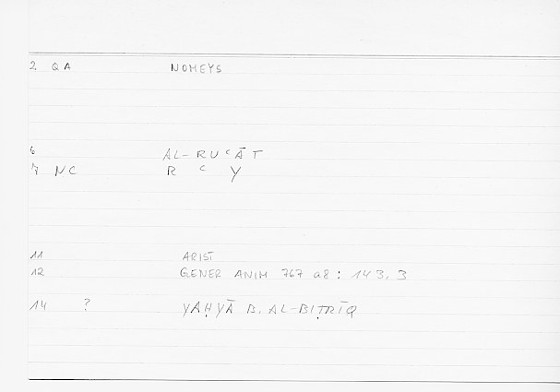 2 QA NOMEYS
6 AL-RUʿĀT
7 NC R ʿ Y
11 ARIST
12 GENER ANIM 767 a8 : 143.3
14 ? YAḤYĀ B. AL-BIṬRĪQ